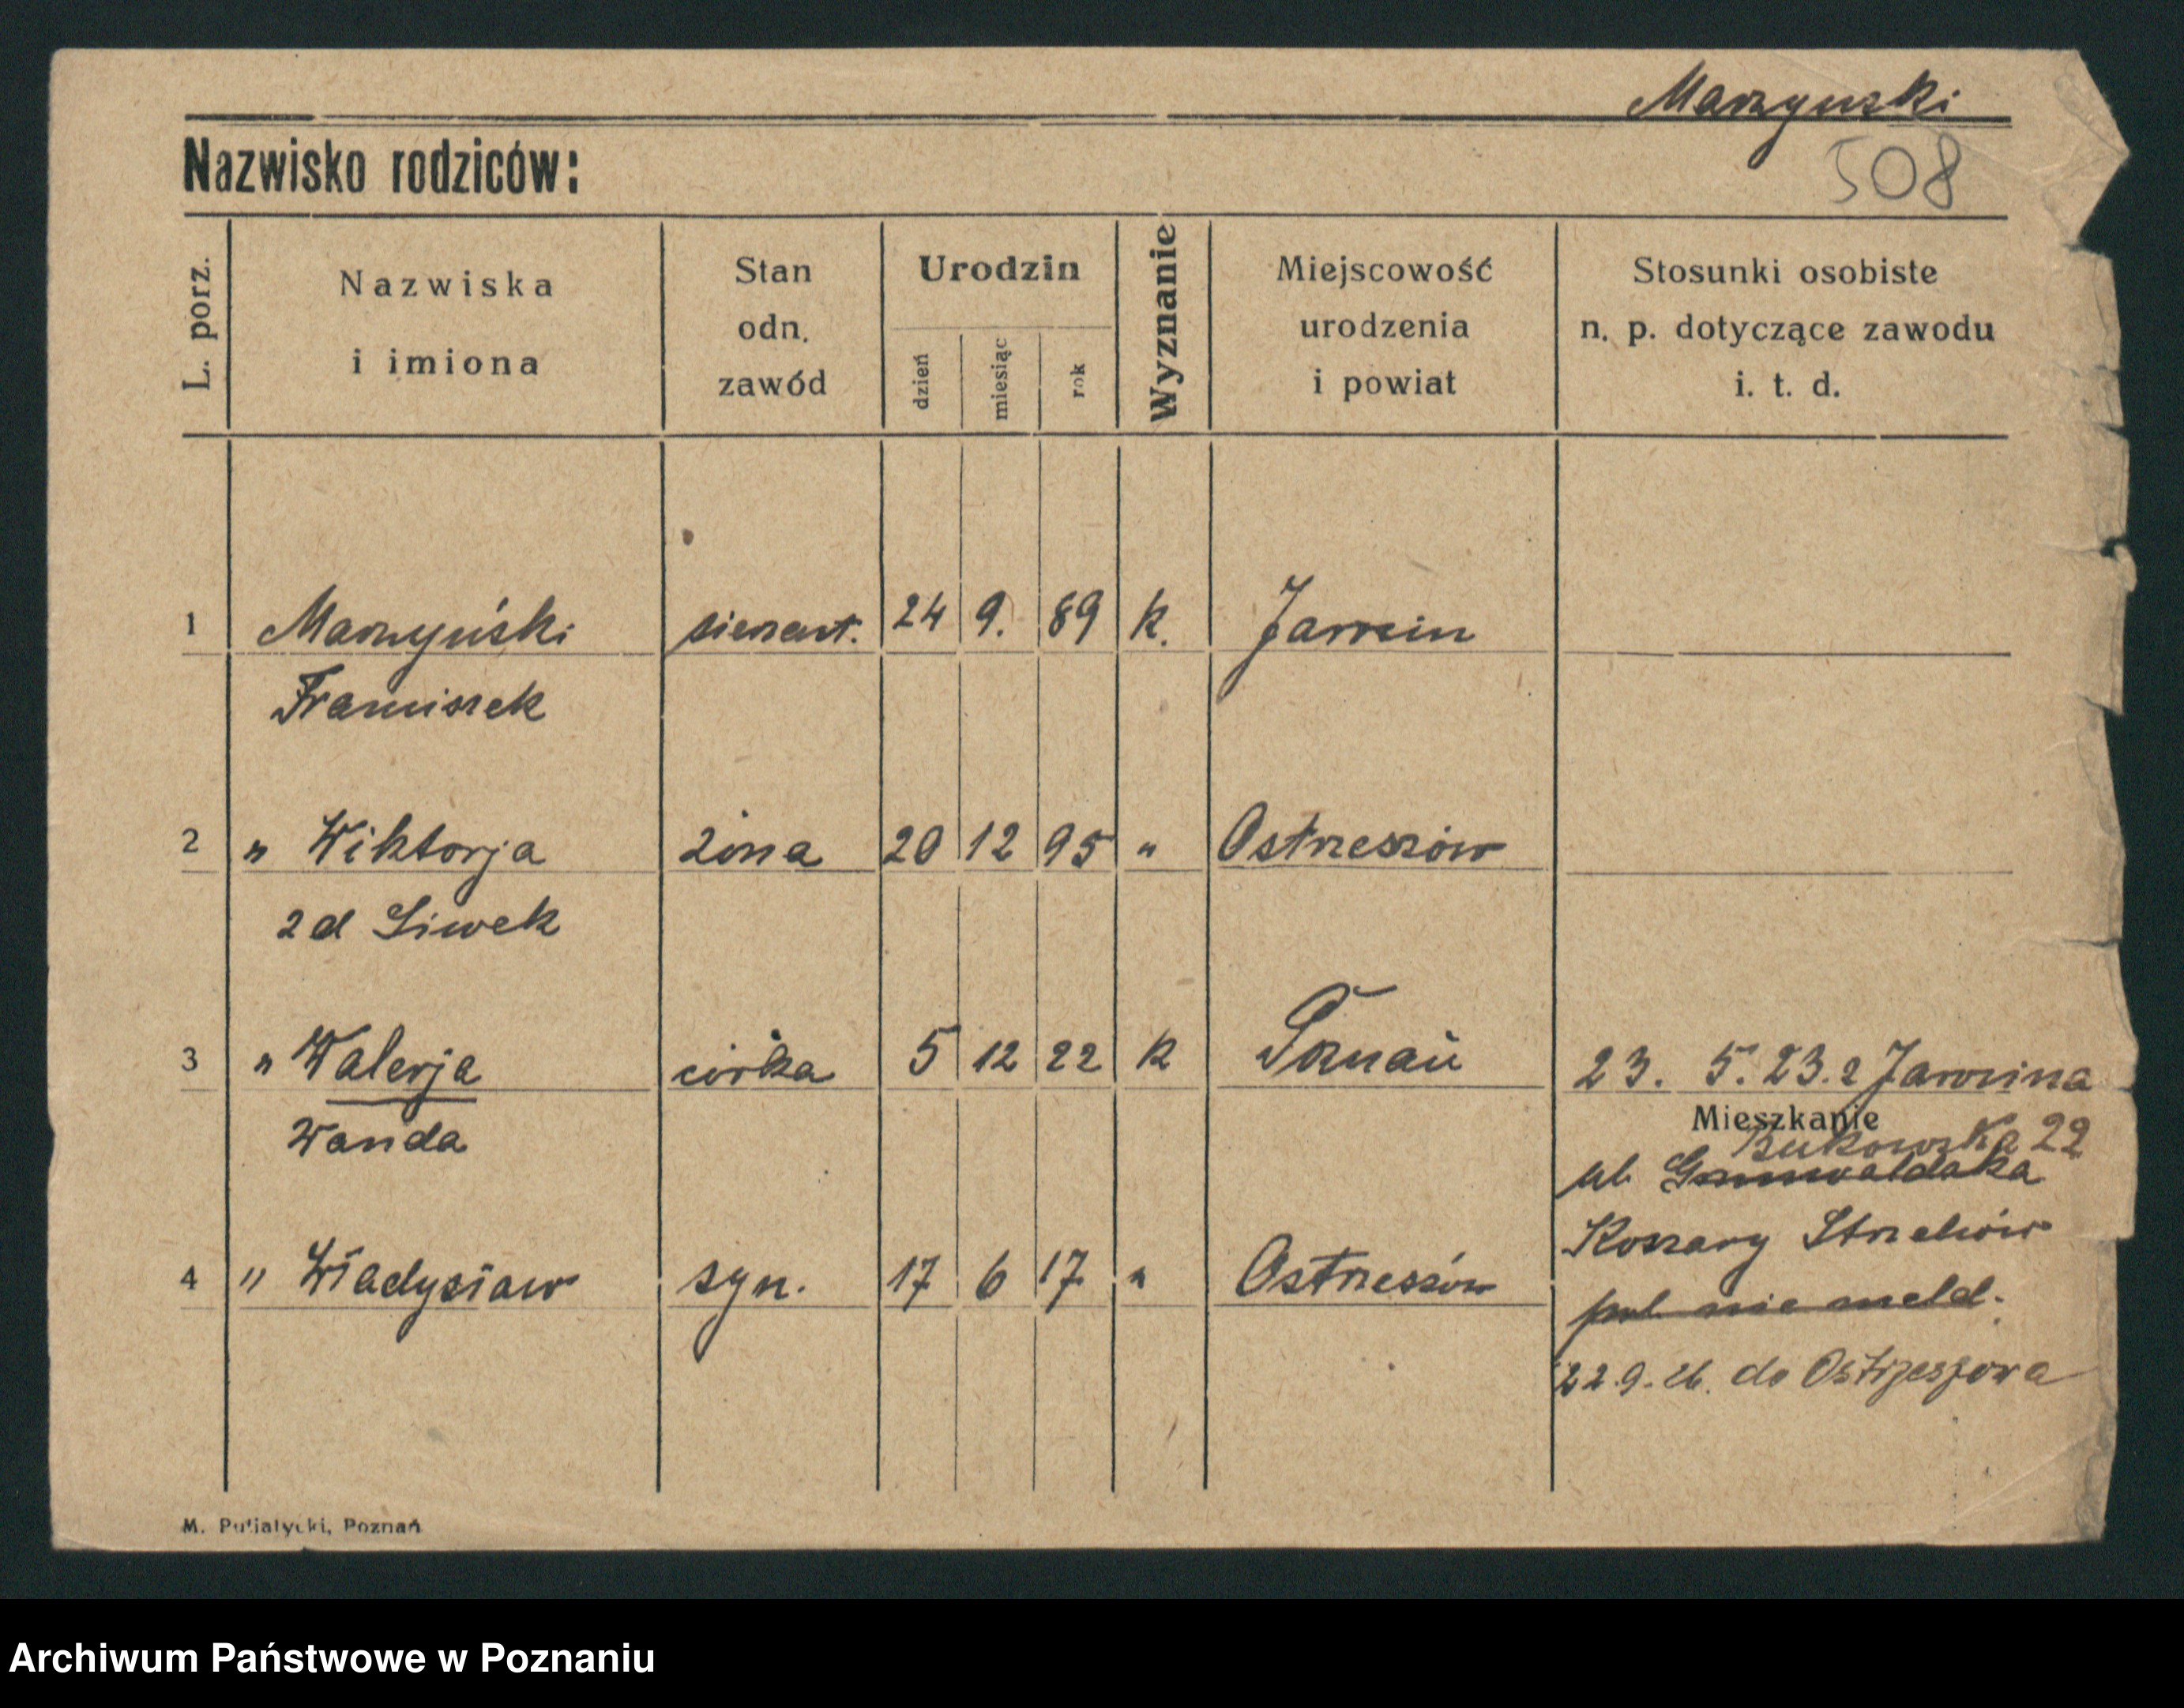 Marzyński
508
Nazwisko rodziców:
L. porz.
Nazwiska
i imiona
Stan
odn.
zawód
Urodzin
dzień
miesiąc
rok
Wyznanie
Miejscowość
urodzenia
i powiat
Stosunki osobiste
n. p. dotyczące zawodu
i. t. d.
1 Marzyński sierżant. 24 9. 89 k. Jarocin
Franciszek
2 " Wiktorja żona 20 12 95 " Ostrzeszów
zd Siwek
3 " Walerja córka 5 12 22 k Poznań 23. 5. 23. z Jarocina
Wanda
Mieszkanie
Bukowska 22
ul. Grunwaldzka
Koszary Strzelców
4 " Władysław syn. 17 6 17 " Ostrzeszów
pol. nie meld.
22.9.26. do Ostrzeszowa
M. Putiatycki, Poznań
Archiwum Państwowe w Poznaniu